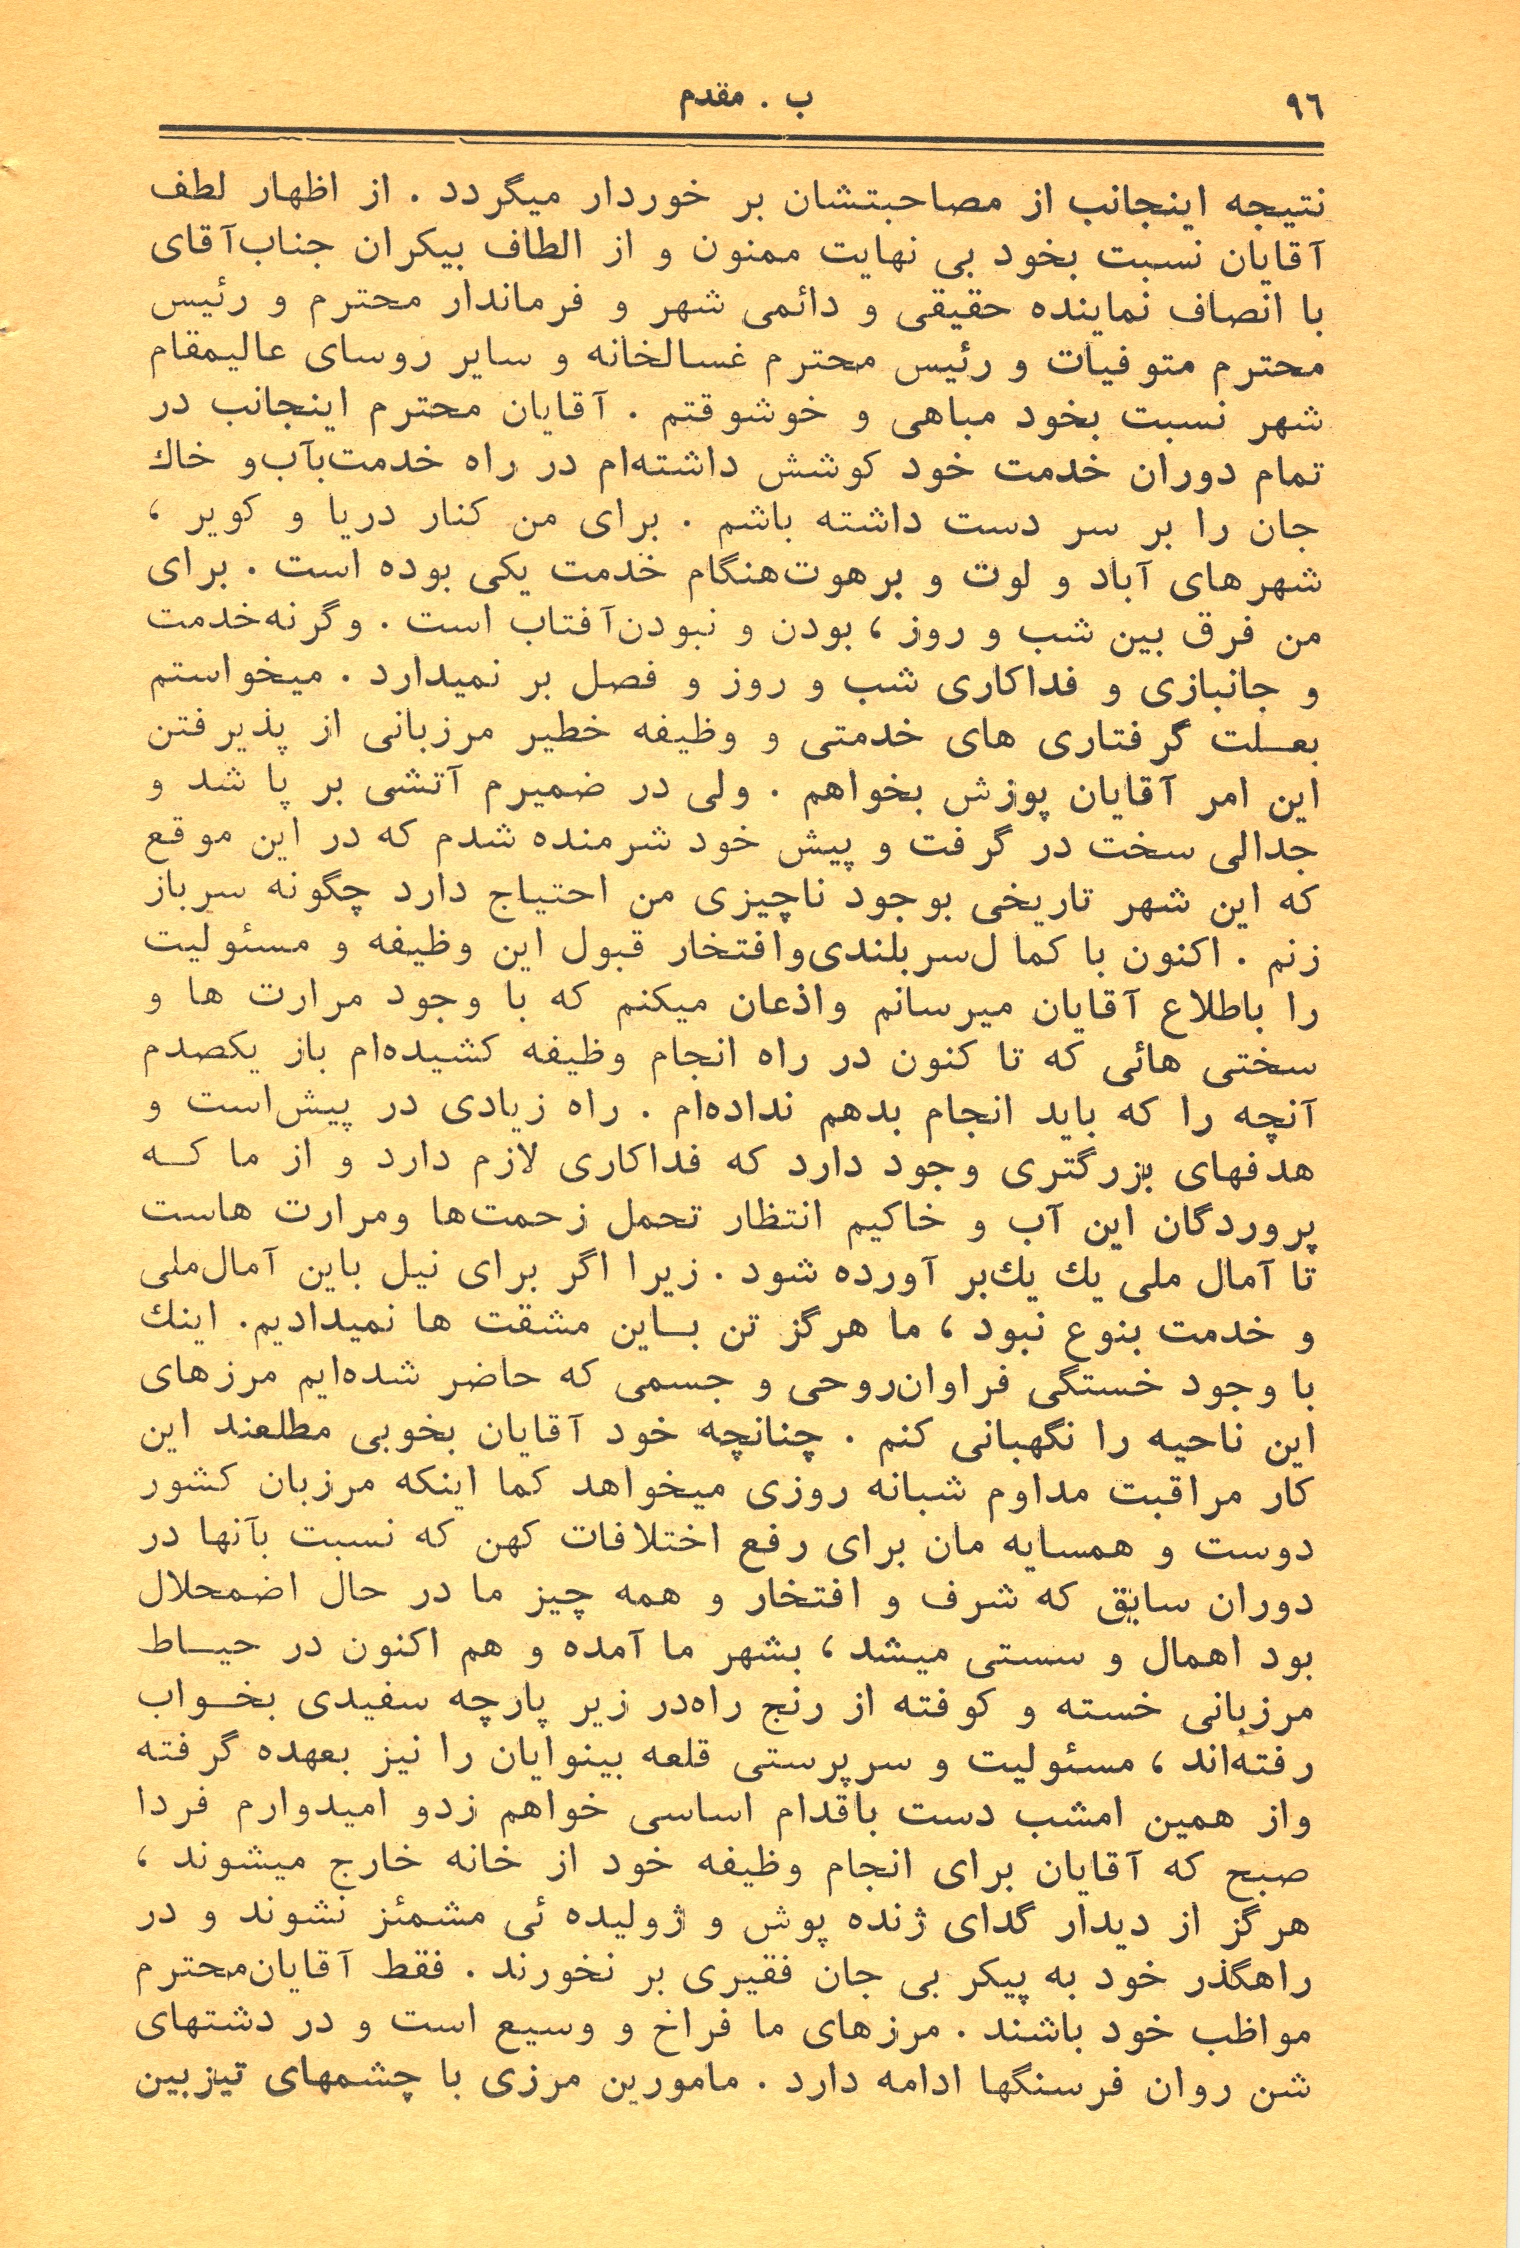 ٩٦
ب . مقدم
نتیجه اینجانب از مصاحبتشان بر خوردار میگردد . از اظهار لطف
آقایان نسبت بخود بی نهایت ممنون و از الطاف بیکران جناب‌آقای
با انصاف نماینده حقیقی و دائمی شهر و فرماندار محترم و رئیس
محترم متوفیات و رئیس محترم غسالخانه و سایر روسای عالیمقام
شهر نسبت بخود مباهی و خوشوقتم . آقایان محترم اینجانب در
تمام دوران خدمت خود کوشش داشته‌ام در راه خدمت‌بآب‌و خاك
جان را بر سر دست داشته باشم . برای من کنار دریا و کویر ،
شهرهای آباد و لوت و برهوت‌هنگام خدمت یکی بوده است . برای
من فرق بین شب و روز ، بودن و نبودن‌آفتاب است . وگرنه‌خدمت
و جانبازی و فداکاری شب و روز و فصل بر نمیدارد . میخواستم
بعلت گرفتاری های خدمتی و وظیفه خطیر مرزبانی از پذیرفتن
این امر آقایان پوزش بخواهم . ولی در ضمیرم آتشی بر پا شد و
جدالی سخت در گرفت و پیش خود شرمنده شدم که در این موقع
که این شهر تاریخی بوجود ناچیزی من احتیاج دارد چگونه سرباز
زنم . اکنون با کمال‌سربلندی‌وافتخار قبول این وظیفه و مسئولیت
را باطلاع آقایان میرسانم واذعان میکنم که با وجود مرارت ها و
سختی هائی که تا کنون در راه انجام وظیفه کشیده‌ام باز یکصدم
آنچه را که باید انجام بدهم نداده‌ام . راه زیادی در پیش‌است و
هدفهای بزرگتری وجود دارد که فداکاری لازم دارد و از ما کـه
پروردگان این آب و خاکیم انتظار تحمل زحمت‌ها ومرارت هاست
تا آمال ملی یك یك‌بر آورده شود . زیرا اگر برای نیل باین آمال‌ملی
و خدمت بنوع نبود ، ما هرگز تن بـاین مشقت ها نمیدادیم. اینك
با وجود خستگی فراوان‌روحی و جسمی که حاضر شده‌ایم مرزهای
این ناحیه را نگهبانی کنم . چنانچه خود آقایان بخوبی مطلعند این
کار مراقبت مداوم شبانه روزی میخواهد کما اینکه مرزبان کشور
دوست و همسایه مان برای رفع اختلافات کهن که نسبت بآنها در
دوران سابق که شرف و افتخار و همه چیز ما در حال اضمحلال
بود اهمال و سستی میشد ، بشهر ما آمده و هم اکنون در حیـاط
مرزبانی خسته و کوفته از رنج راه‌در زیر پارچه سفیدی بخـواب
رفته‌اند ، مسئولیت و سرپرستی قلعه بینوایان را نیز بعهده گرفته
واز همین امشب دست باقدام اساسی خواهم زدو امیدوارم فردا
صبح که آقایان برای انجام وظیفه خود از خانه خارج میشوند ،
هرگز از دیدار گدای ژنده پوش و ژولیده ئی مشمئز نشوند و در
راهگذر خود به پیکر بی جان فقیری بر نخورند . فقط آقایان‌محترم
مواظب خود باشند . مرزهای ما فراخ و وسیع است و در دشتهای
شن روان فرسنگها ادامه دارد . مامورین مرزی با چشمهای تیزبین